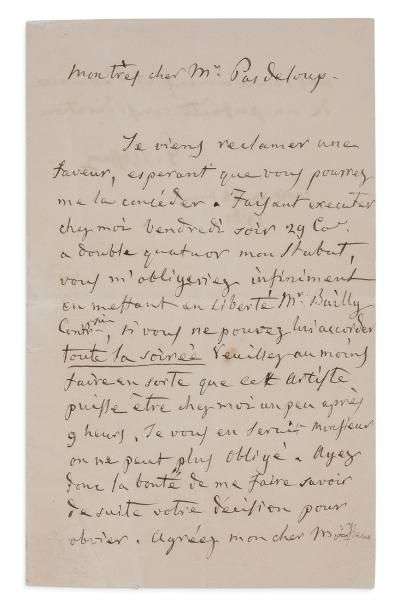 Mon très cher Mr. Pasdeloup.
Je viens reclamer une
faveur, esperant que vous pourrez
me la concéder. Faisant executer
chez moi Vendredi soir 29 Cot.
a double quatuor mon Stabat,
vous m'obligeriez infiniment
en mettant en liberté Mr. Bailly
Si vous ne pouvez lui accorder
toute la soirée veuillez au moins
faire en sorte que cet Artiste
puisse être chez moi un peu après
9 heures. Je vous en serais Monsieur
on ne peut plus obligé. Ayez
donc la bonté de me faire savoir
de suite votre décision pour
obvier. Agréez mon cher